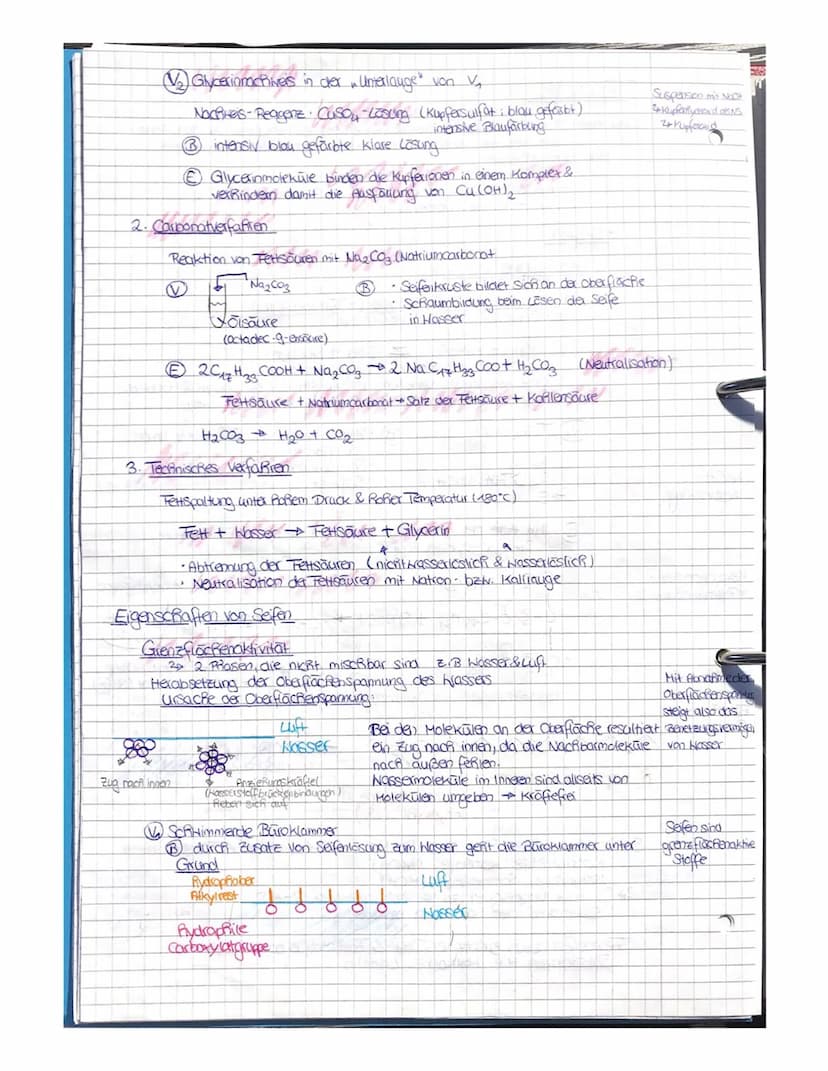 V₂ Glycerinnachweis in der "Unterlauge" von V₁
Nachweis-Reagenz: CuSO₄-Lösung (Kupfersulfat: blau gefärbt)
intensive Blaufärbung
Suspension mit NaOH
→ Kupferhydroxid
B intensiv blau gefärbte klare Lösung
E Glycerinmoleküle binden die Kupferionen in einem Komplex &
verhindern damit die Ausfällung von Cu(OH)₂
2. Carbonatverfahren
Reaktion von Fettsäuren mit Na₂CO₃ (Natriumcarbonat
V
Na₂CO₃
Ölsäure
(octadec-9-ensäure)
B · Seifenkruste bildet sich an der Oberfläche
· Schaumbildung beim Lösen der Seife
in Wasser
E 2C₁₇H₃₃COOH + Na₂CO₃ → 2 NaC₁₇H₃₃COO + H₂CO₃ (Neutralisation)
Fettsäure + Natriumcarbonat → Salz der Fettsäure + Kohlensäure
H₂CO₃ → H₂O + CO₂
3. Technisches Verfahren
Fettspaltung unter hohem Druck & hoher Temperatur (180°C)
Fett + Wasser → Fettsäure + Glycerin
· Abtrennung der Fettsäuren (nicht wasserlöslich & wasserlöslich)
· Neutralisation der Fettsäuren mit Natron- bzw. Kalilauge
Eigenschaften von Seifen
Grenzflächenaktivität
↳ 2 Phasen, die nicht mischbar sind z.B Wasser & Luft
Herabsetzung der Oberflächenspannung des Wassers
Ursache der Oberflächenspannung:
Mit Abnahme der
Oberflächenspannung
steigt also das
Benetzungsvermögen
von Wasser
Luft
Wasser
Zug nach innen
Anziehungskräfte
(Wasserstoffbrückenbindungen)
heben sich auf
Bei den Molekülen an der Oberfläche resultiert
ein Zug nach innen, da die Nachbarmoleküle
nach außen fehlen.
Wassermoleküle im Inneren sind allseits von
Molekülen umgeben → Kräftefrei
V₁ Schwimmende Büroklammer
B durch Zusatz von Seifenlösung zum Wasser geht die Büroklammer unter
Grund
Seifen sind
grenzflächenaktive
Stoffe
hydrophober
Alkylrest
Luft
Wasser
hydrophile
Carboxylatgruppe